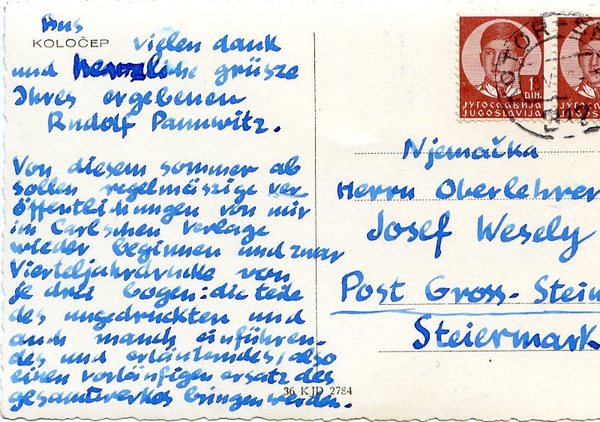 Aus
KOLOČEP vielen dank
und herzliche grüsze
Ihres ergebenen
Rudolf Pannwitz.
Von diesem sommer ab
sollen regelmäszige ver
öffentlichungen von mir
im Carlschen verlage
wieder beginnen und zwar
Vierteljahrdrucke von
je drei bogen: die teile
des ungedruckten und
auch manch einführen-
des und erläuterndes, also
einen vorläufigen ersatz des
gesamtwerkes bringen werden.
36 KJD 2784
1
DIN.
ЈУГОСЛАВИЈА
JUGOSLAVIJA
Njemačka
Herrn Oberlehrer
Josef Wesely
Post Gross-Stein
Steiermark